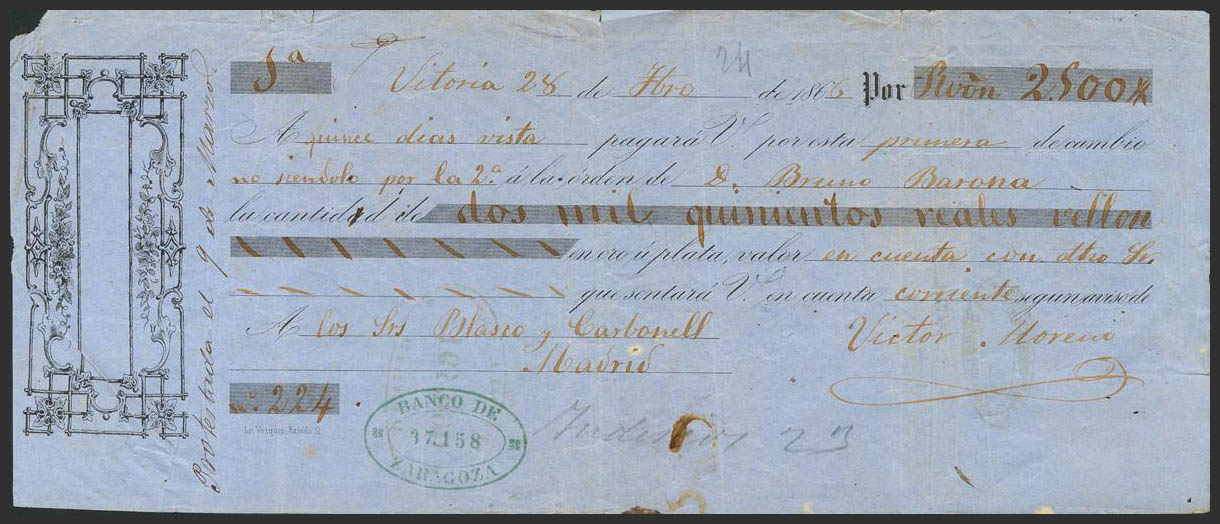 1ª
24
Vitoria 28 de Fbro de 1866 Por Rvón 2.500
A quince dias vista pagará V. por esta primera de cambio
no siendolo por la 2.ª á la órden de D. Bruno Barona
la cantidad de dos mil quinientos reales vellon
en oro ú plata, valor en cuenta con dhro Sr.
que sentará V. en cuenta corriente, segun aviso de
A los Srs Blasco y Carbonell Victor Moreno
Madrid
Nº 224
BANCO DE
37.158
ZARAGOZA
23
Protestada el 9 de Marzo